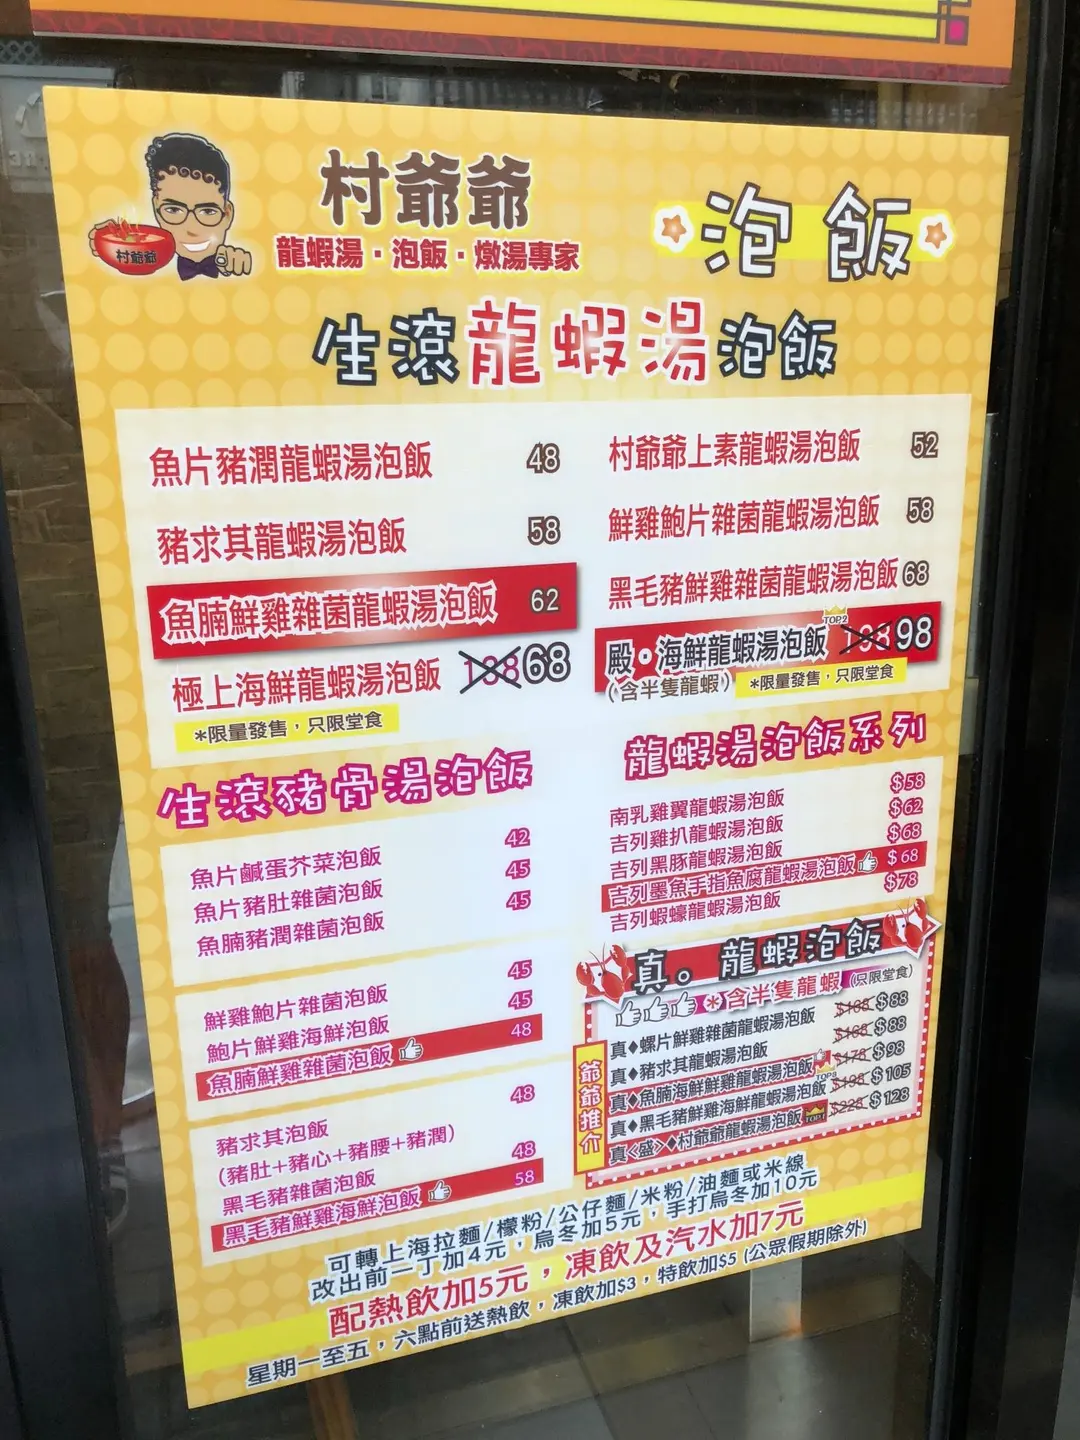 村爺爺
龍蝦湯・泡飯・燉湯專家
村爺爺
泡飯
生滾龍蝦湯泡飯
魚片豬潤龍蝦湯泡飯 48
豬求其龍蝦湯泡飯 58
魚腩鮮雞雜菌龍蝦湯泡飯 62
極上海鮮龍蝦湯泡飯 138 68
*限量發售，只限堂食
村爺爺上素龍蝦湯泡飯 52
鮮雞鮑片雜菌龍蝦湯泡飯 58
黑毛豬鮮雞雜菌龍蝦湯泡飯 68
TOP2
殿・海鮮龍蝦湯泡飯 198 98
(含半隻龍蝦) *限量發售，只限堂食
生滾豬骨湯泡飯
魚片鹹蛋芥菜泡飯 42
魚片豬肚雜菌泡飯 45
魚腩豬潤雜菌泡飯 45
鮮雞鮑片雜菌泡飯 45
鮑片鮮雞海鮮泡飯 45
魚腩鮮雞雜菌泡飯 48
豬求其泡飯 48
(豬肚+豬心+豬腰+豬潤)
黑毛豬雜菌泡飯 48
黑毛豬鮮雞海鮮泡飯 58
龍蝦湯泡飯系列
南乳雞翼龍蝦湯泡飯 $58
吉列雞扒龍蝦湯泡飯 $62
吉列黑豚龍蝦湯泡飯 $68
吉列墨魚手指魚腐龍蝦湯泡飯 $68
吉列蝦蠔龍蝦湯泡飯 $78
真。龍蝦泡飯
*含半隻龍蝦 (只限堂食)
爺爺推介
真♦螺片鮮雞雜菌龍蝦湯泡飯 $168 $88
真♦豬求其龍蝦湯泡飯 $168 $88
真♦魚腩海鮮鮮雞龍蝦湯泡飯 TOP3 $178 $98
真♦黑毛豬鮮雞海鮮龍蝦湯泡飯 $198 $105
真<盛>♦村爺爺龍蝦湯泡飯 TOP1 $228 $128
可轉上海拉麵/檬粉/公仔麵/米粉/油麵或米線
改出前一丁加4元，烏冬加5元，手打烏冬加10元
配熱飲加5元，凍飲及汽水加7元
星期一至五，六點前送熱飲，凍飲加$3，特飲加$5 (公眾假期除外)